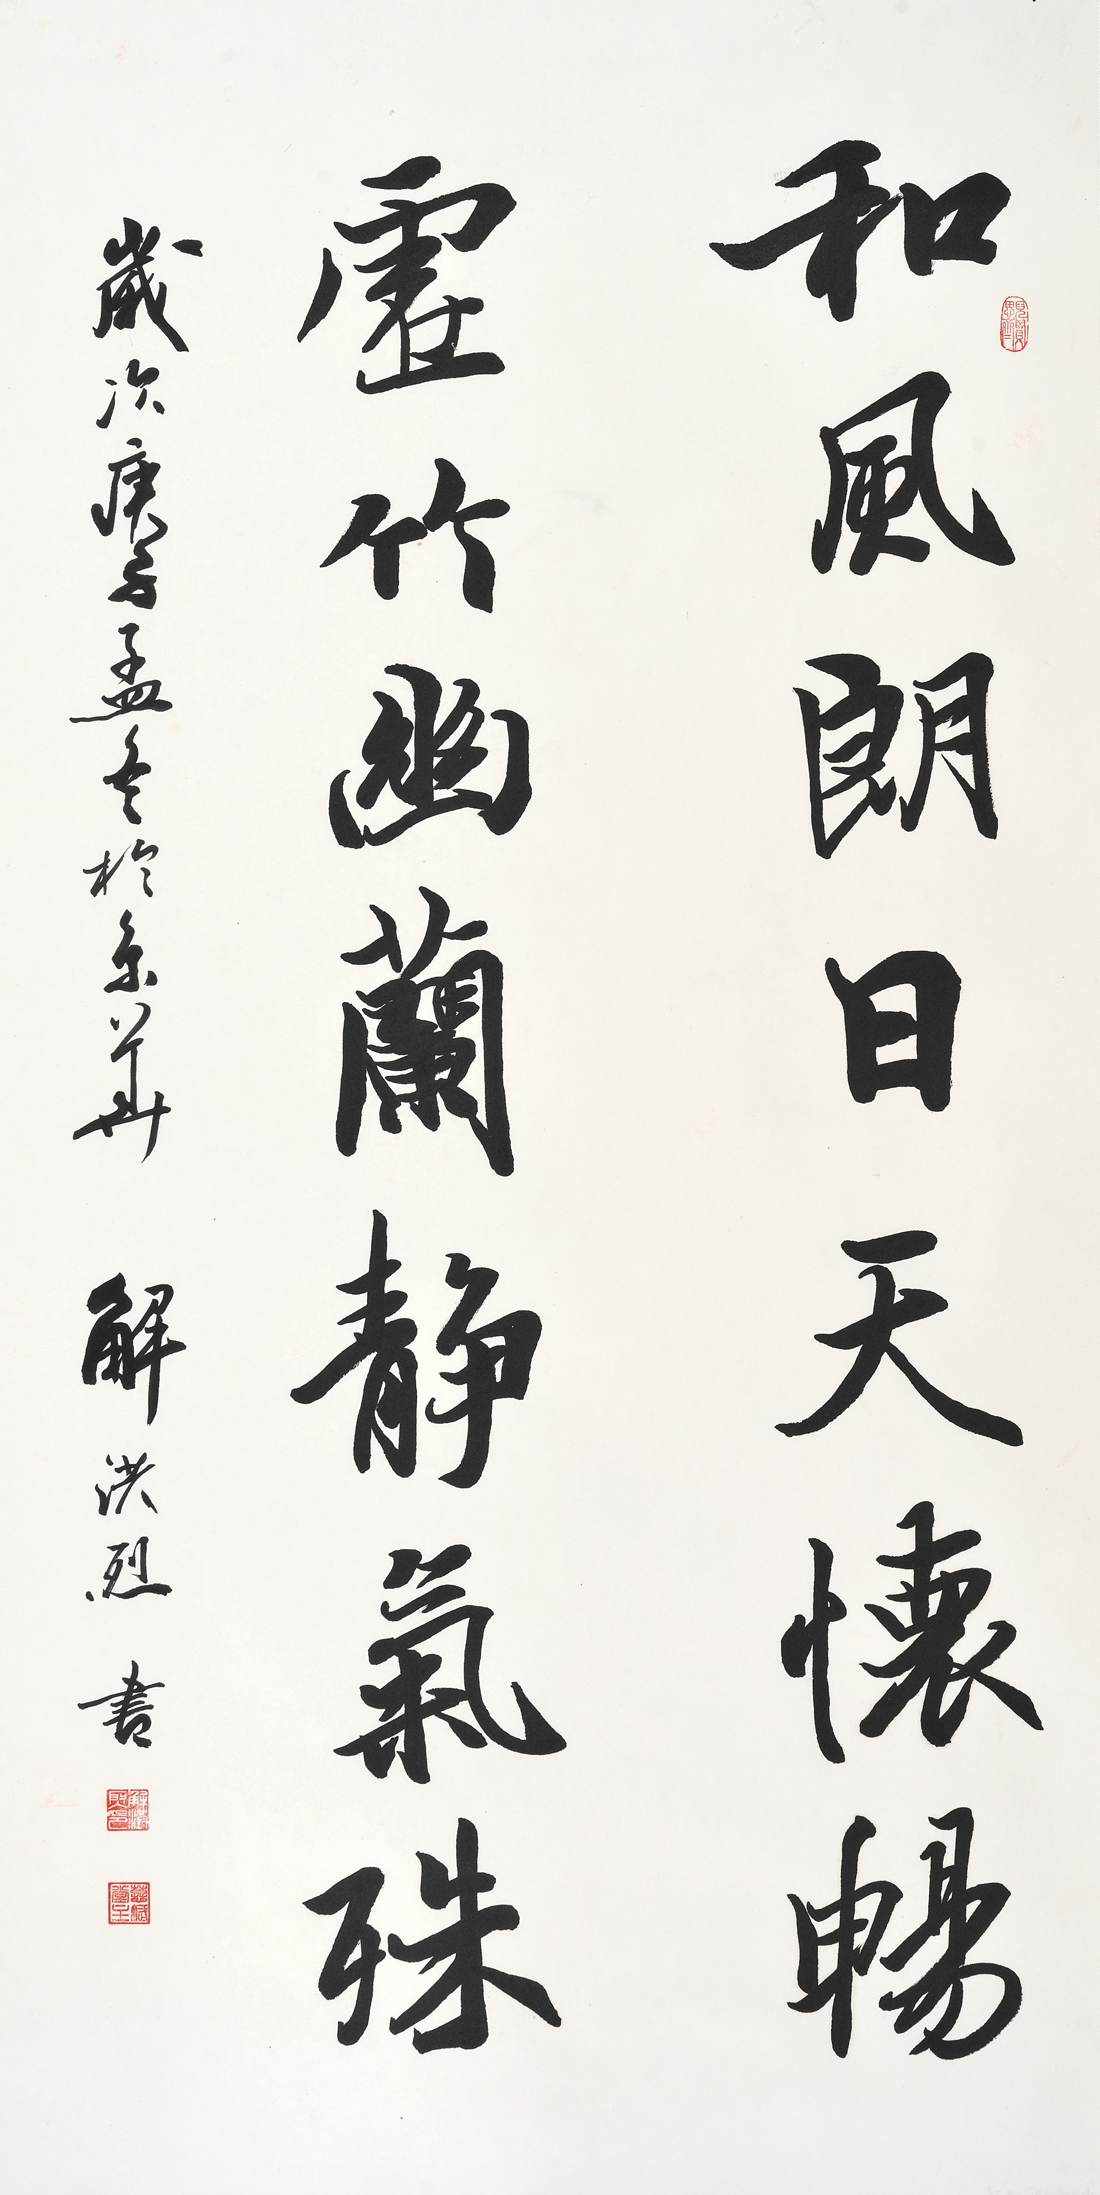 和風朗日天懷暢
見賢思齊
虛竹幽蘭靜氣殊
歲次庚子孟冬於京華 解洪烈 書